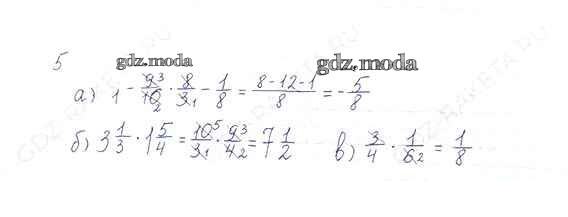 5
gdz.moda gdz.moda
а) 1 - 9³/10₂ · 8/3₁ - 1/8 = 8-12-1/8 = -5/8
б) 3 1/3 · 1 5/4 = 10⁵/3₁ · 9³/4₂ = 7 1/2 в) 3/4 · 1/6₂ = 1/8